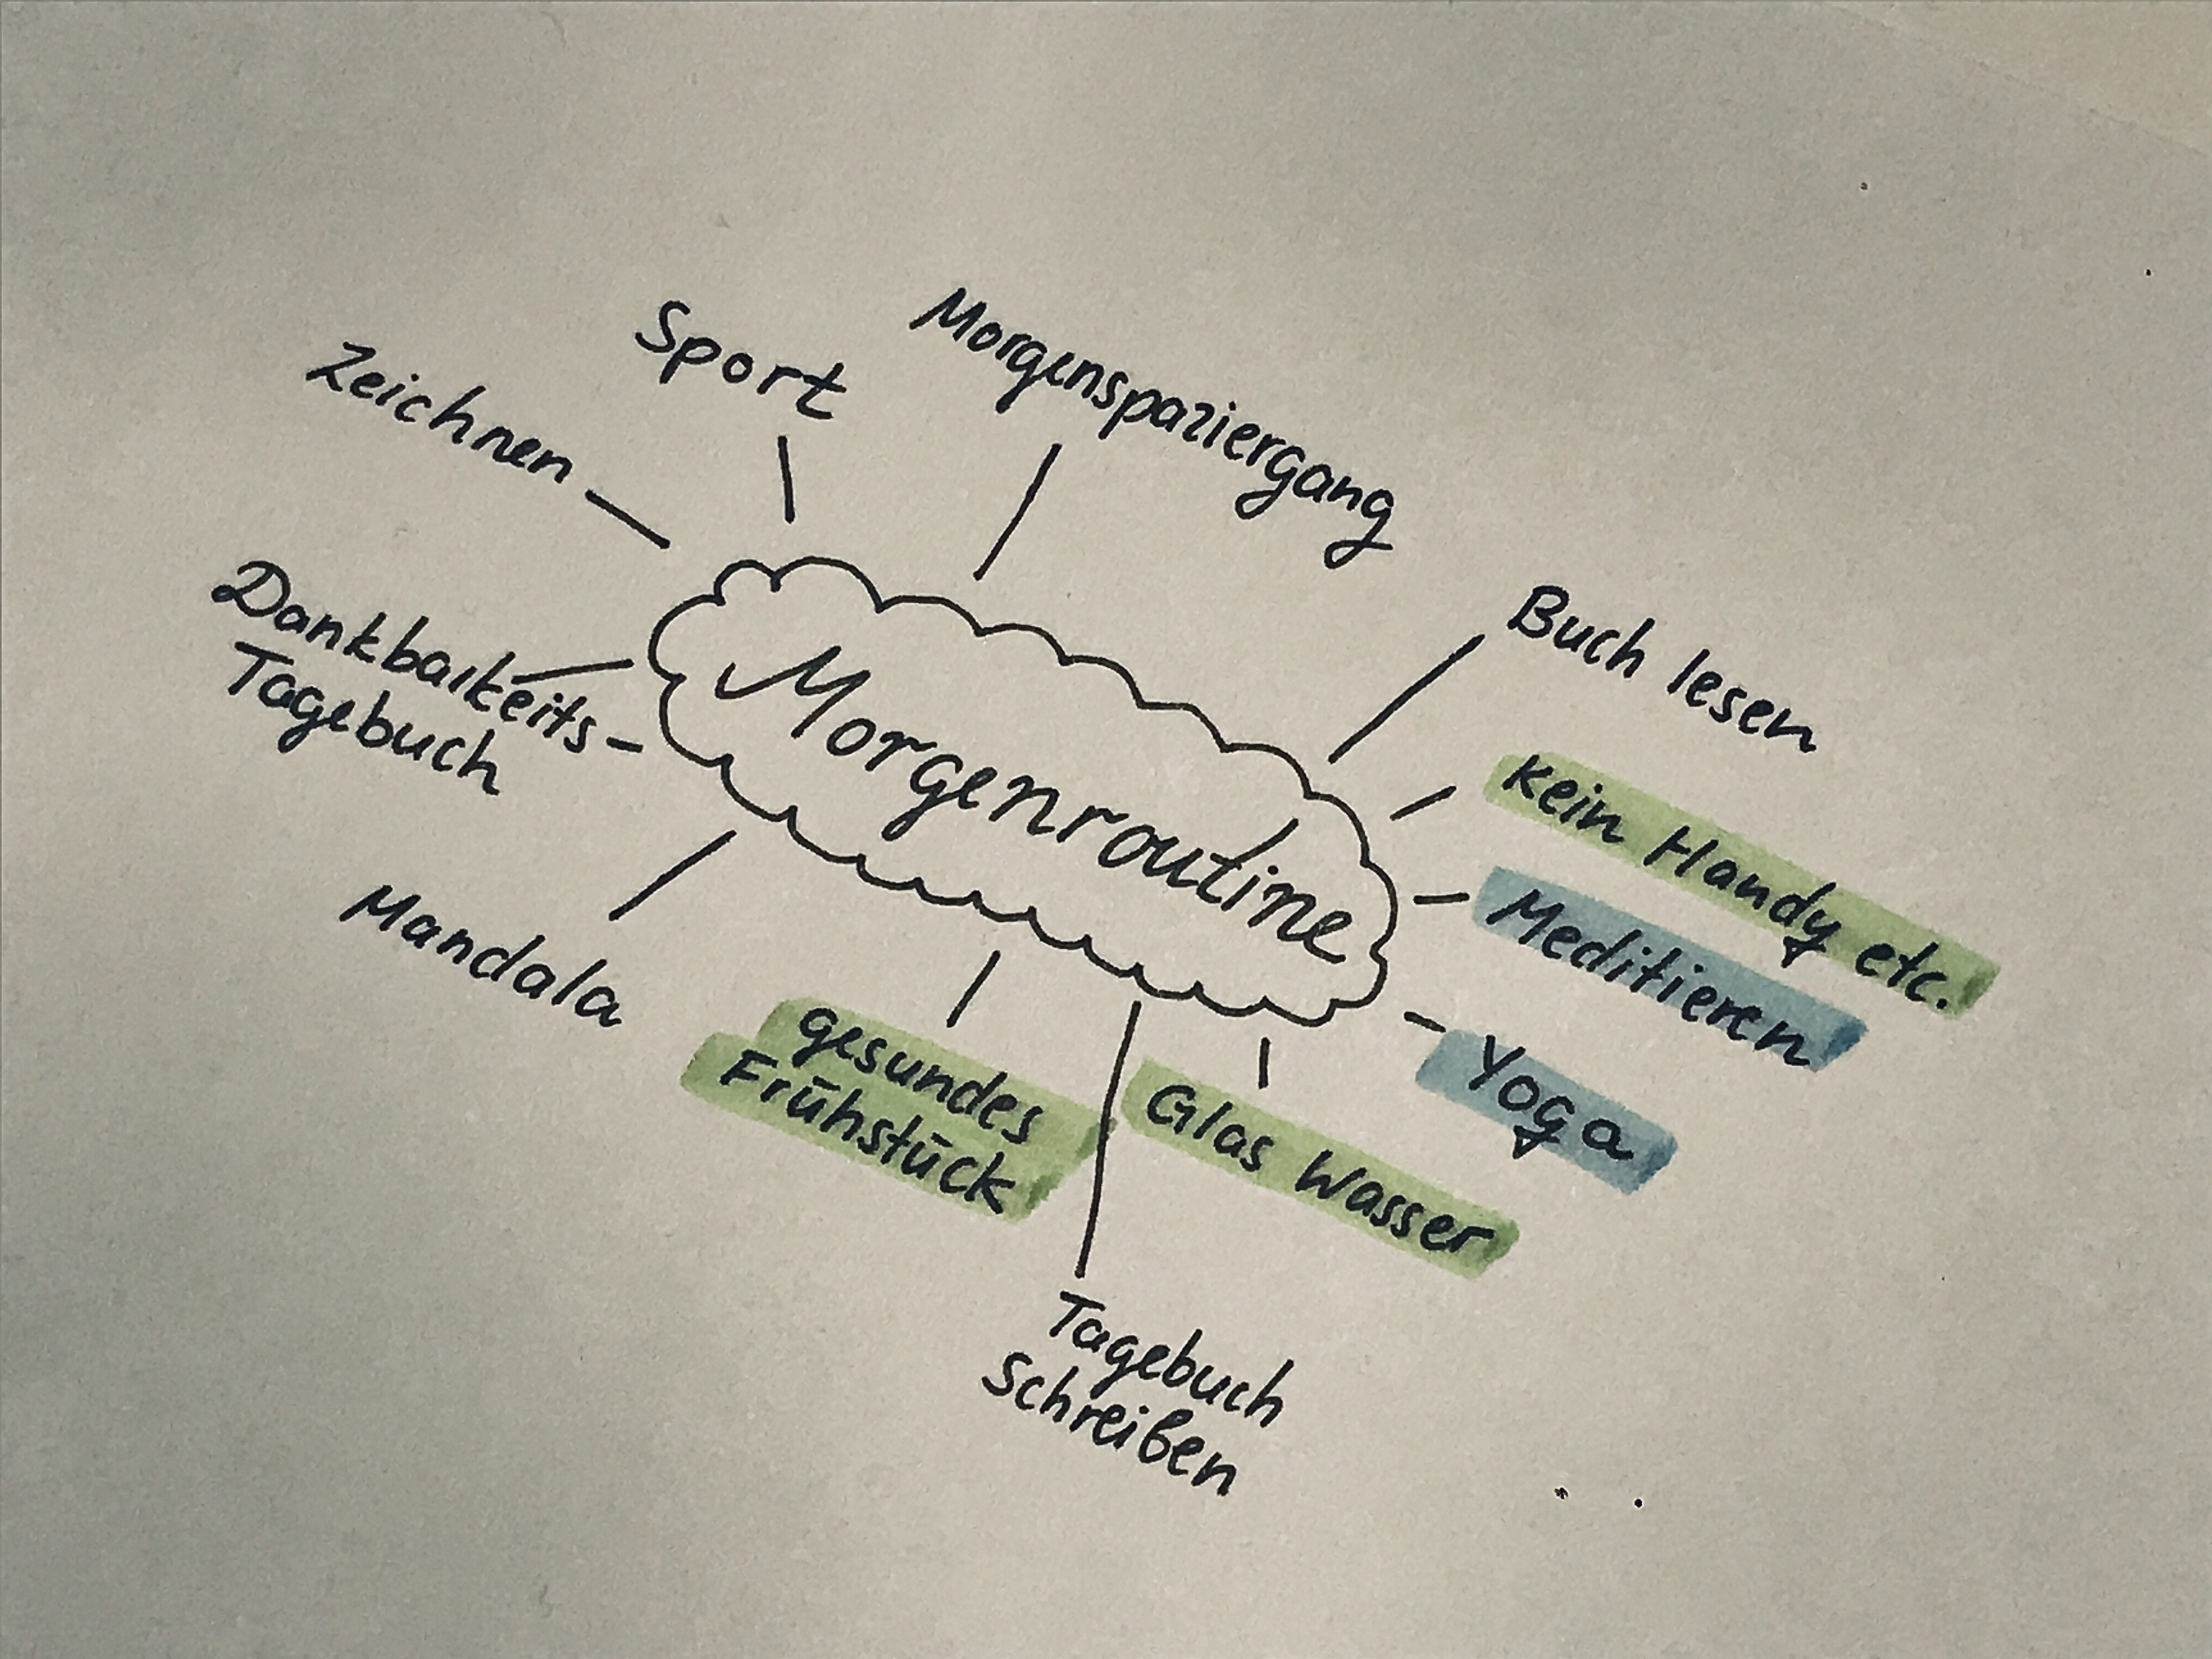 Morgenspaziergang
Sport
Zeichnen
Buch lesen
Dankbarkeits-
Tagebuch
Morgenroutine
kein Handy etc.!
Meditieren
Mandala
Yoga
gesundes
Frühstück
Glas Wasser
Tagebuch
Schreiben